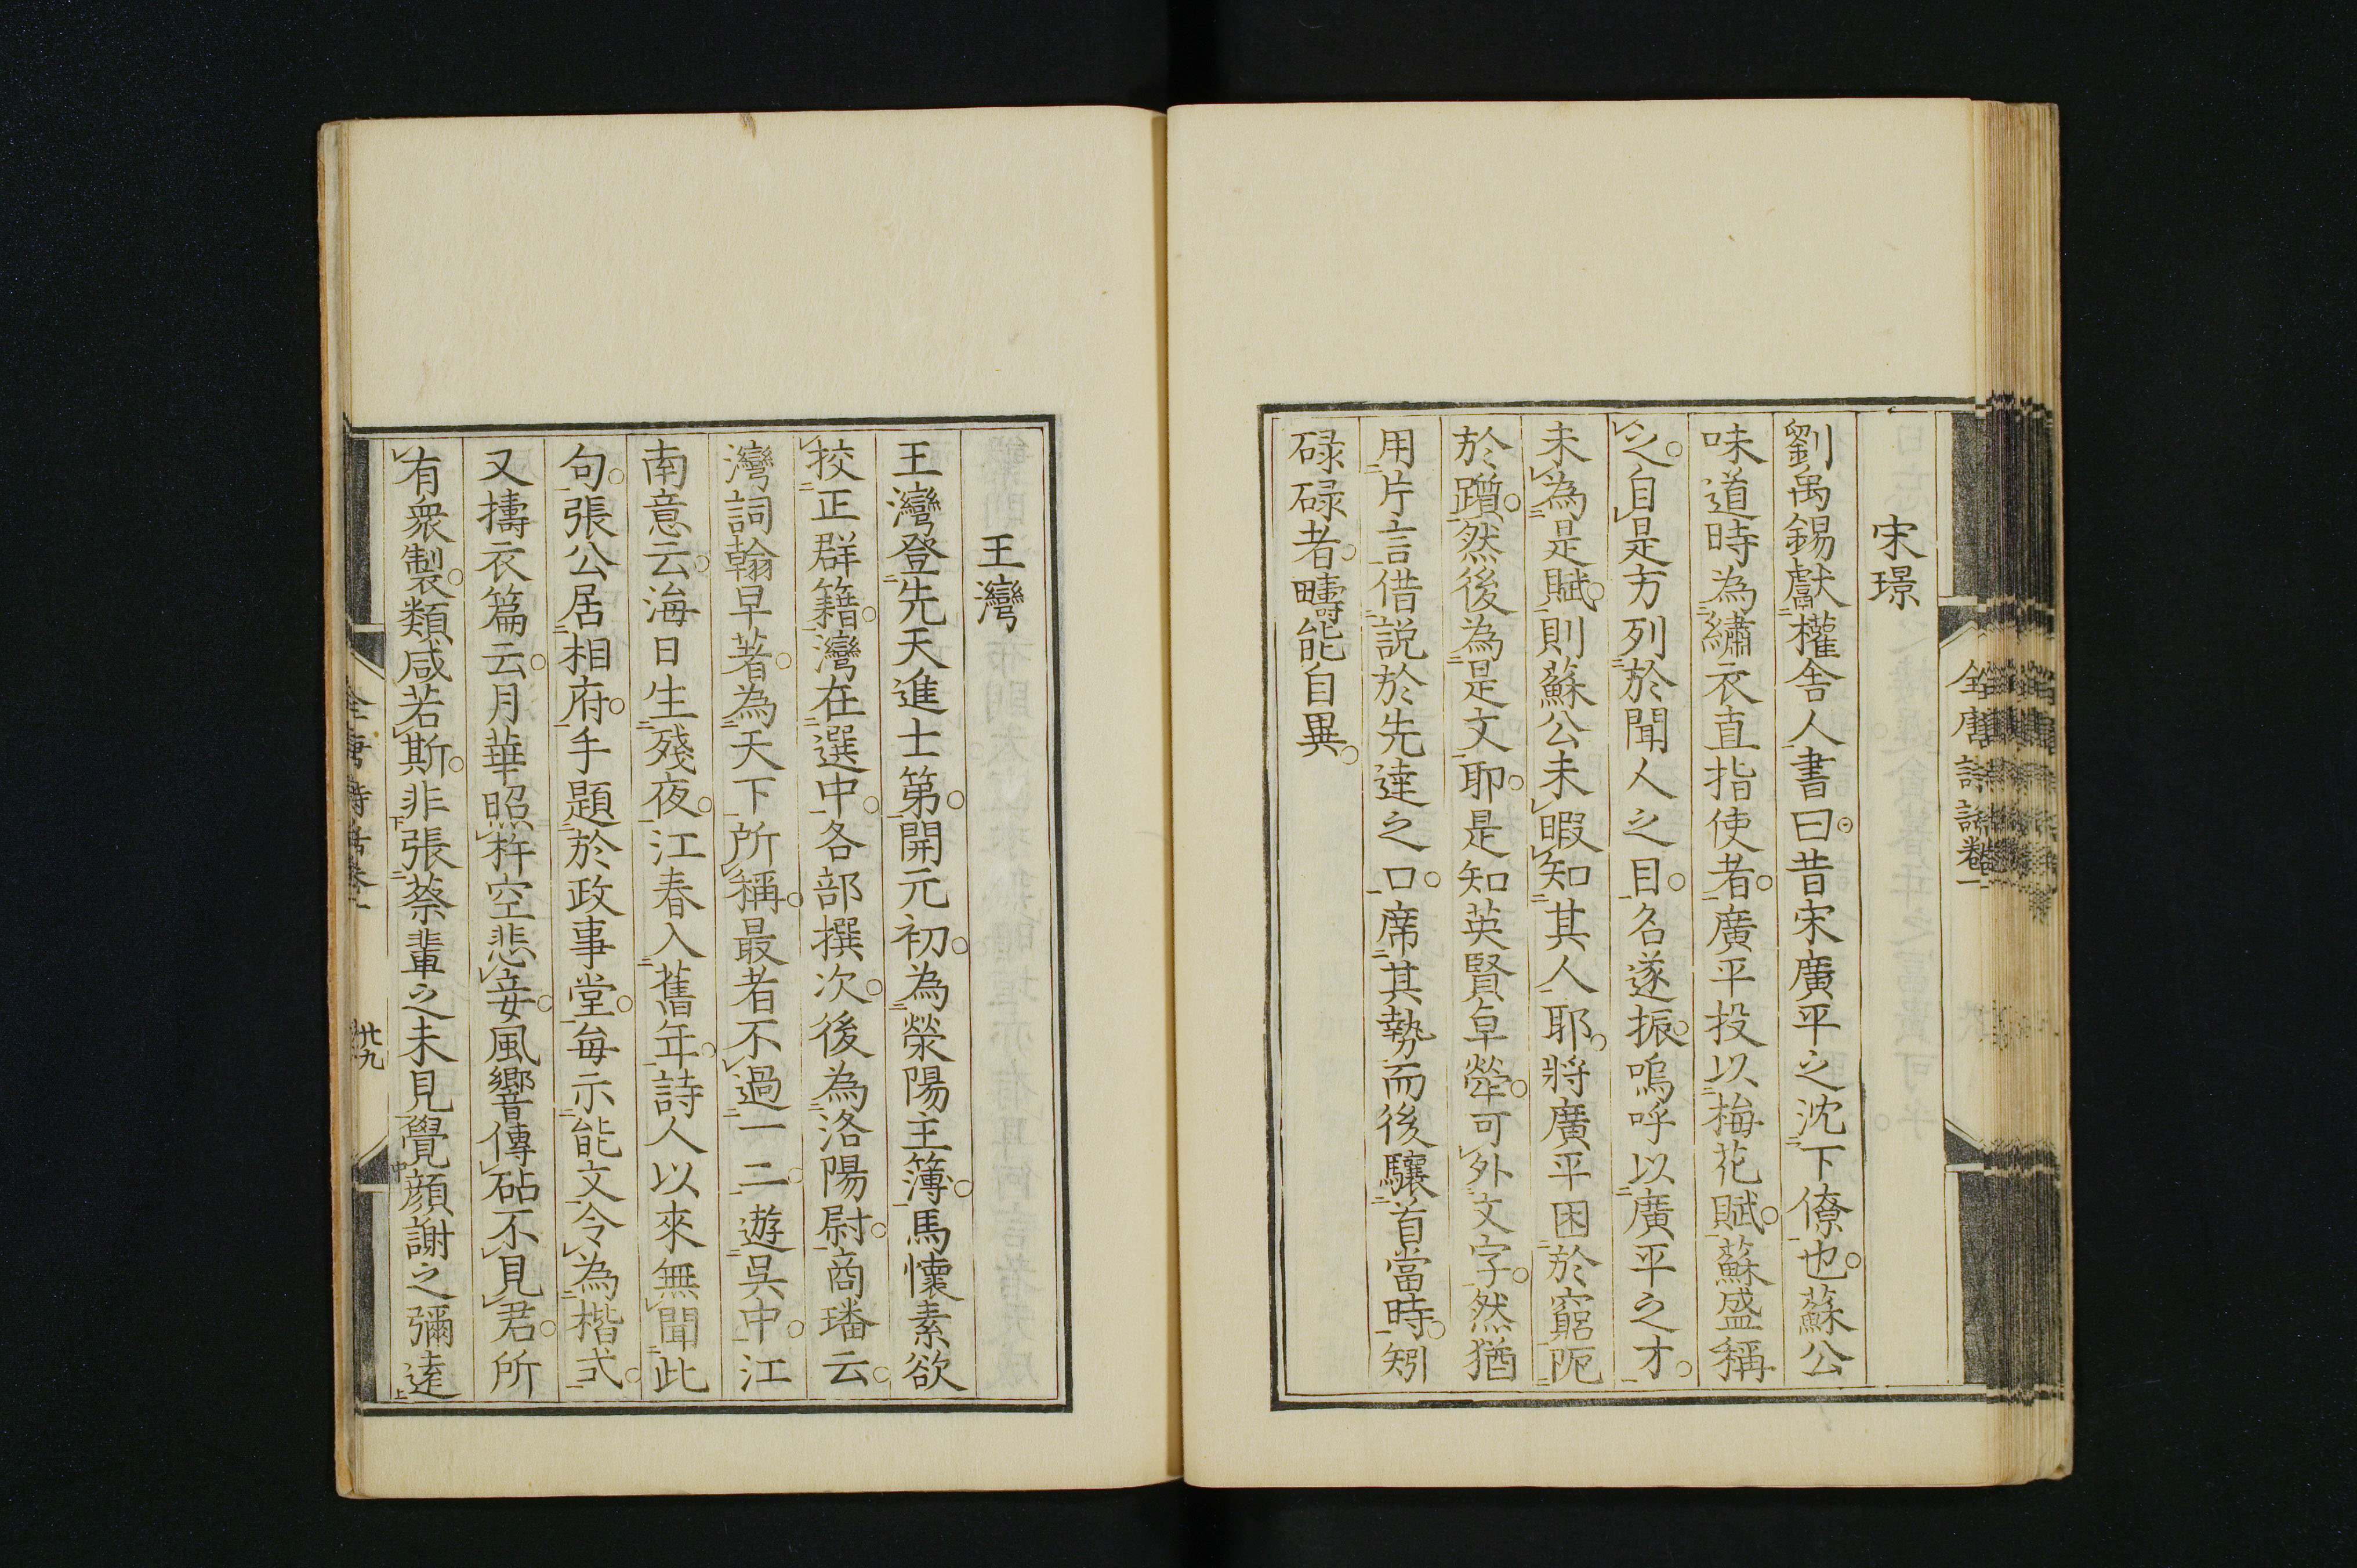 宋璟
劉禹錫獻權舍人書曰昔宋廣平之沈下僚也蘇公
味道時為繡衣直指使者廣平投以梅花賦蘇盛稱
之自是方列於聞人之目名遂振嗚呼以廣平之才
未為是賦則蘇公未暇知其人耶將廣平困於窮阨
於躓然後為是文耶是知英賢卓犖可外文字然猶
用片言借説於先達之口席其勢而後驤首當時矧
碌碌者疇能自異
全唐詩話卷一
王灣
王灣登先天進士第開元初為滎陽主簿馬懷素欲
挍正群籍灣在選中各部撰次後為洛陽尉商璠云
灣詞翰早著為天下所稱最者不過一二遊吳中江
南意云海日生殘夜江春入舊年詩人以來無聞此
句張公居相府手題於政事堂每示能文令為楷式
又擣衣篇云月華照杵空悲妾風響傳砧不見君所
有衆製類咸若斯非張蔡輩之未見覺顔謝之彌遠
全唐詩話卷一
廿九